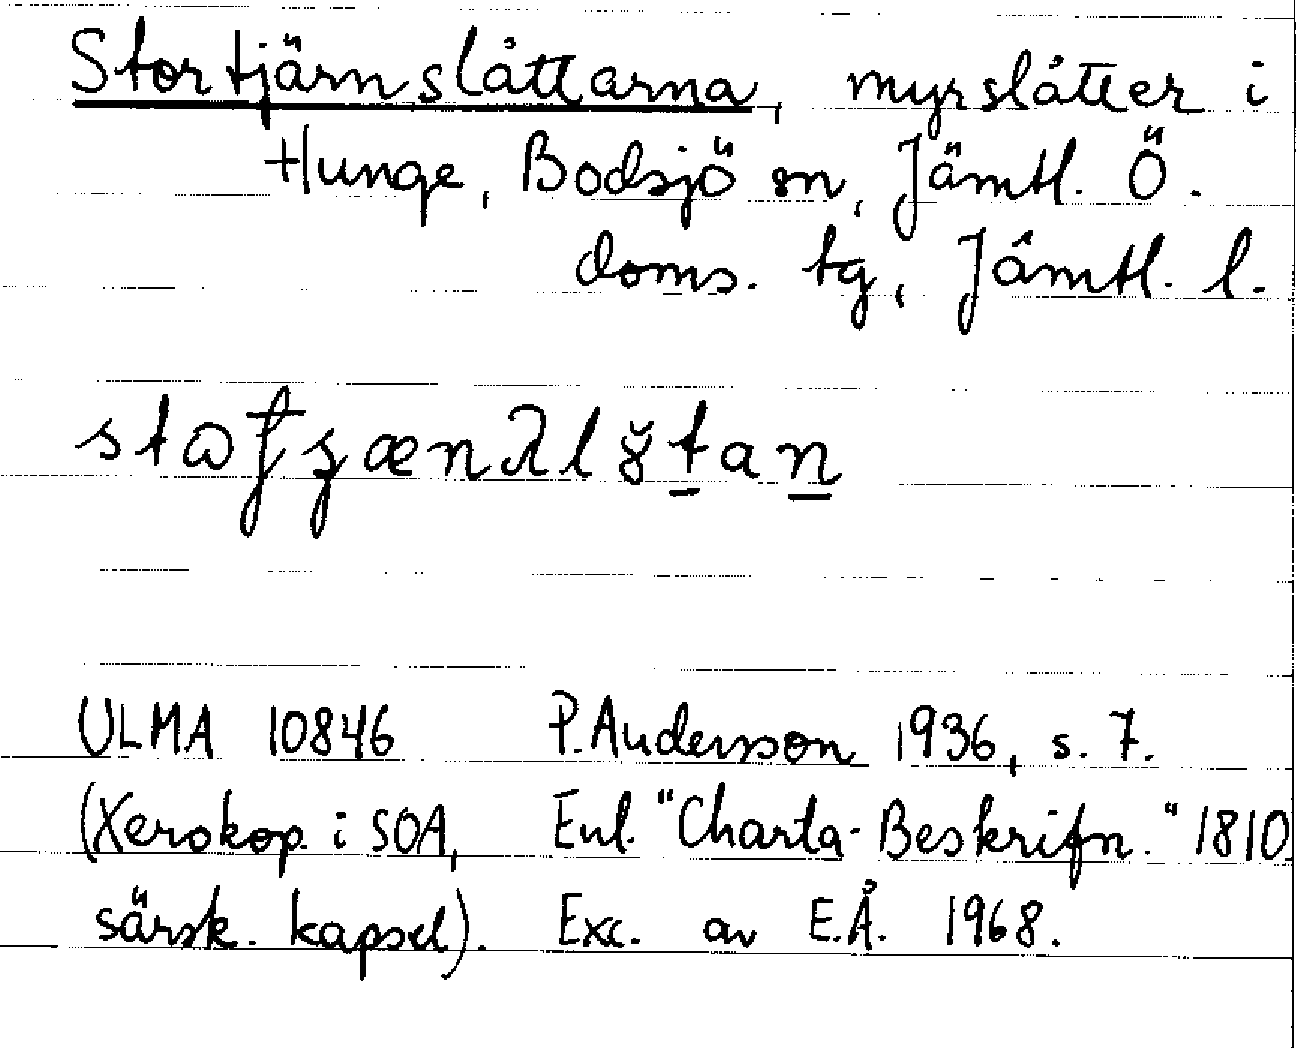 Stortjärnslåttarna, myrslåtter i
Hunge, Bodsjö sn, Jämtl. Ö.
doms. tg, Jämtl. l.
ULMA 10846 P. Andersson 1936, s. 7.
(Xerokop. i SOA, Enl. "Charta-Beskrifn." 1810
särsk. kapsel). Exc. av E.Å. 1968.